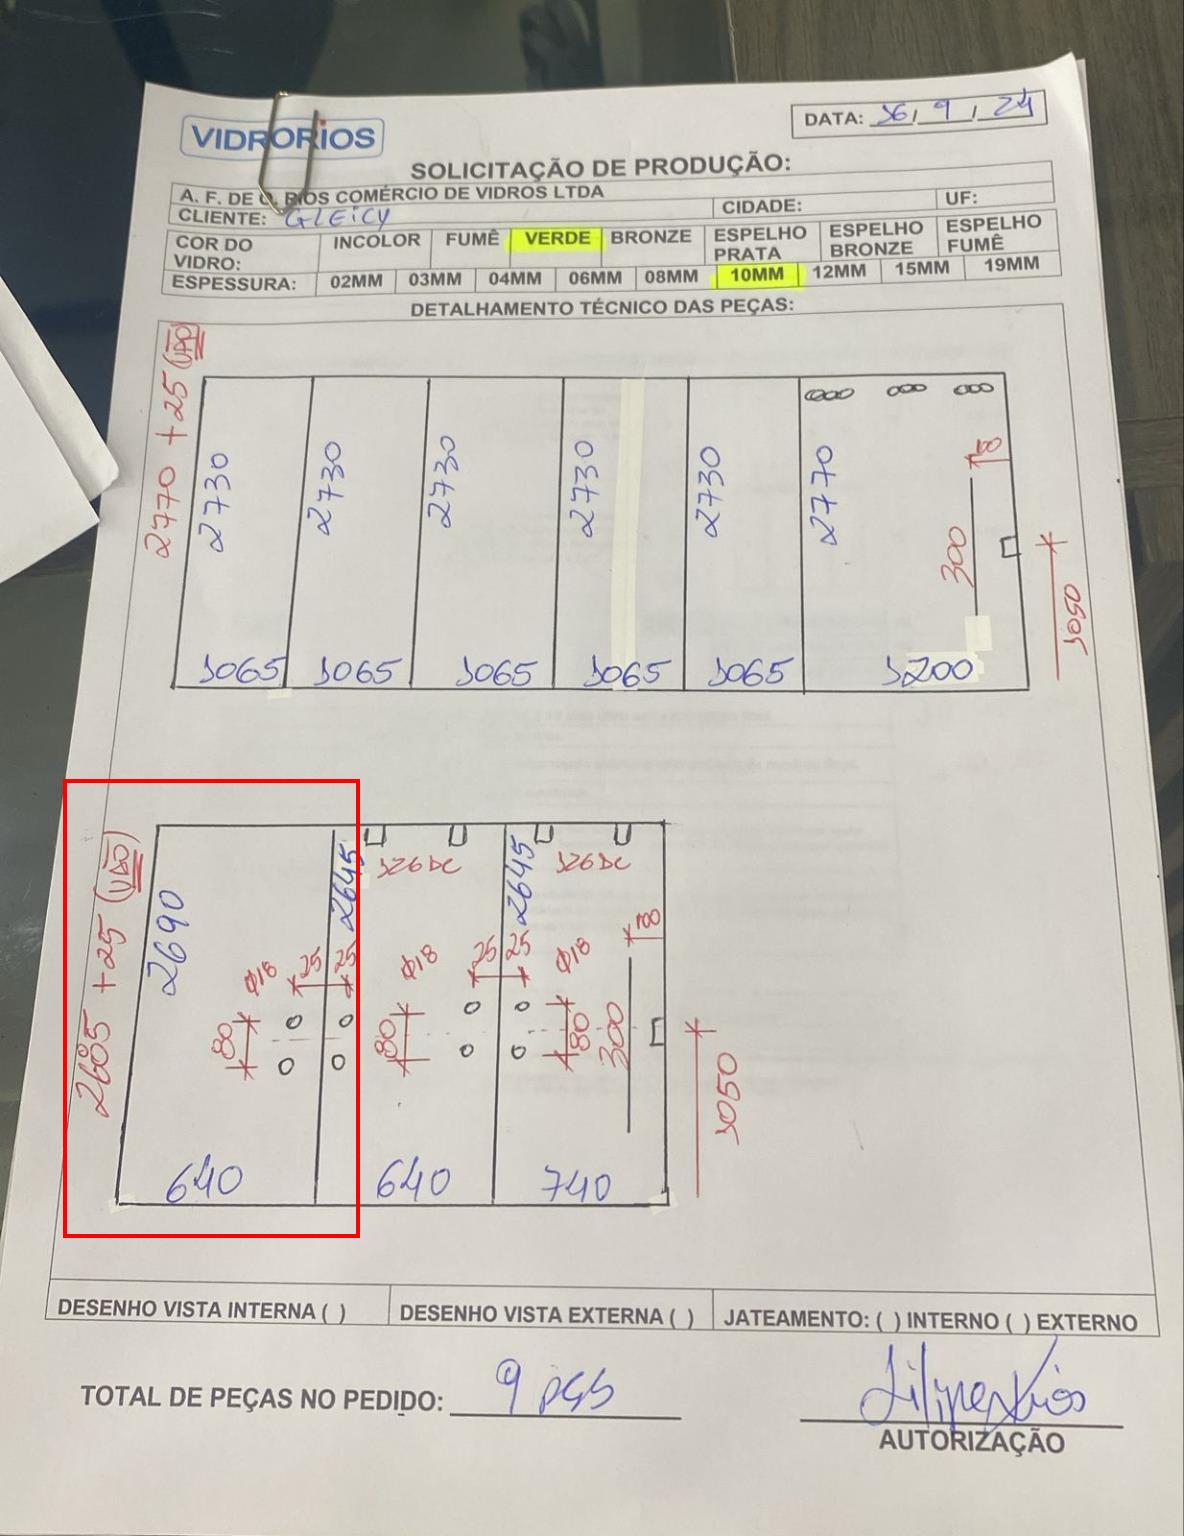 VIDRORIOS
DATA: 16/9/24
SOLICITAÇÃO DE PRODUÇÃO:
A. F. DE O. RIOS COMÉRCIO DE VIDROS LTDA
CLIENTE: GLEICY
CIDADE:
UF:
COR DO VIDRO:
INCOLOR
FUMÊ
VERDE
BRONZE
ESPELHO PRATA
ESPELHO BRONZE
ESPELHO FUMÊ
ESPESSURA:
02MM
03MM
04MM
06MM
08MM
10MM
12MM
15MM
19MM
DETALHAMENTO TÉCNICO DAS PEÇAS:
2770 + 25 (VÃO)
2730
2730
2730
2730
2730
2770
100
300
1050
1065
1065
1065
1065
1065
1200
2685 + 25 (VÃO)
2690
2645
126 DC
2645
126 DC
Ø18
25
25
Ø18
25
25
Ø18
100
80
80
80
300
1050
640
640
740
DESENHO VISTA INTERNA ( )
DESENHO VISTA EXTERNA ( )
JATEAMENTO: ( ) INTERNO ( ) EXTERNO
TOTAL DE PEÇAS NO PEDIDO: 9 pçs
AUTORIZAÇÃO